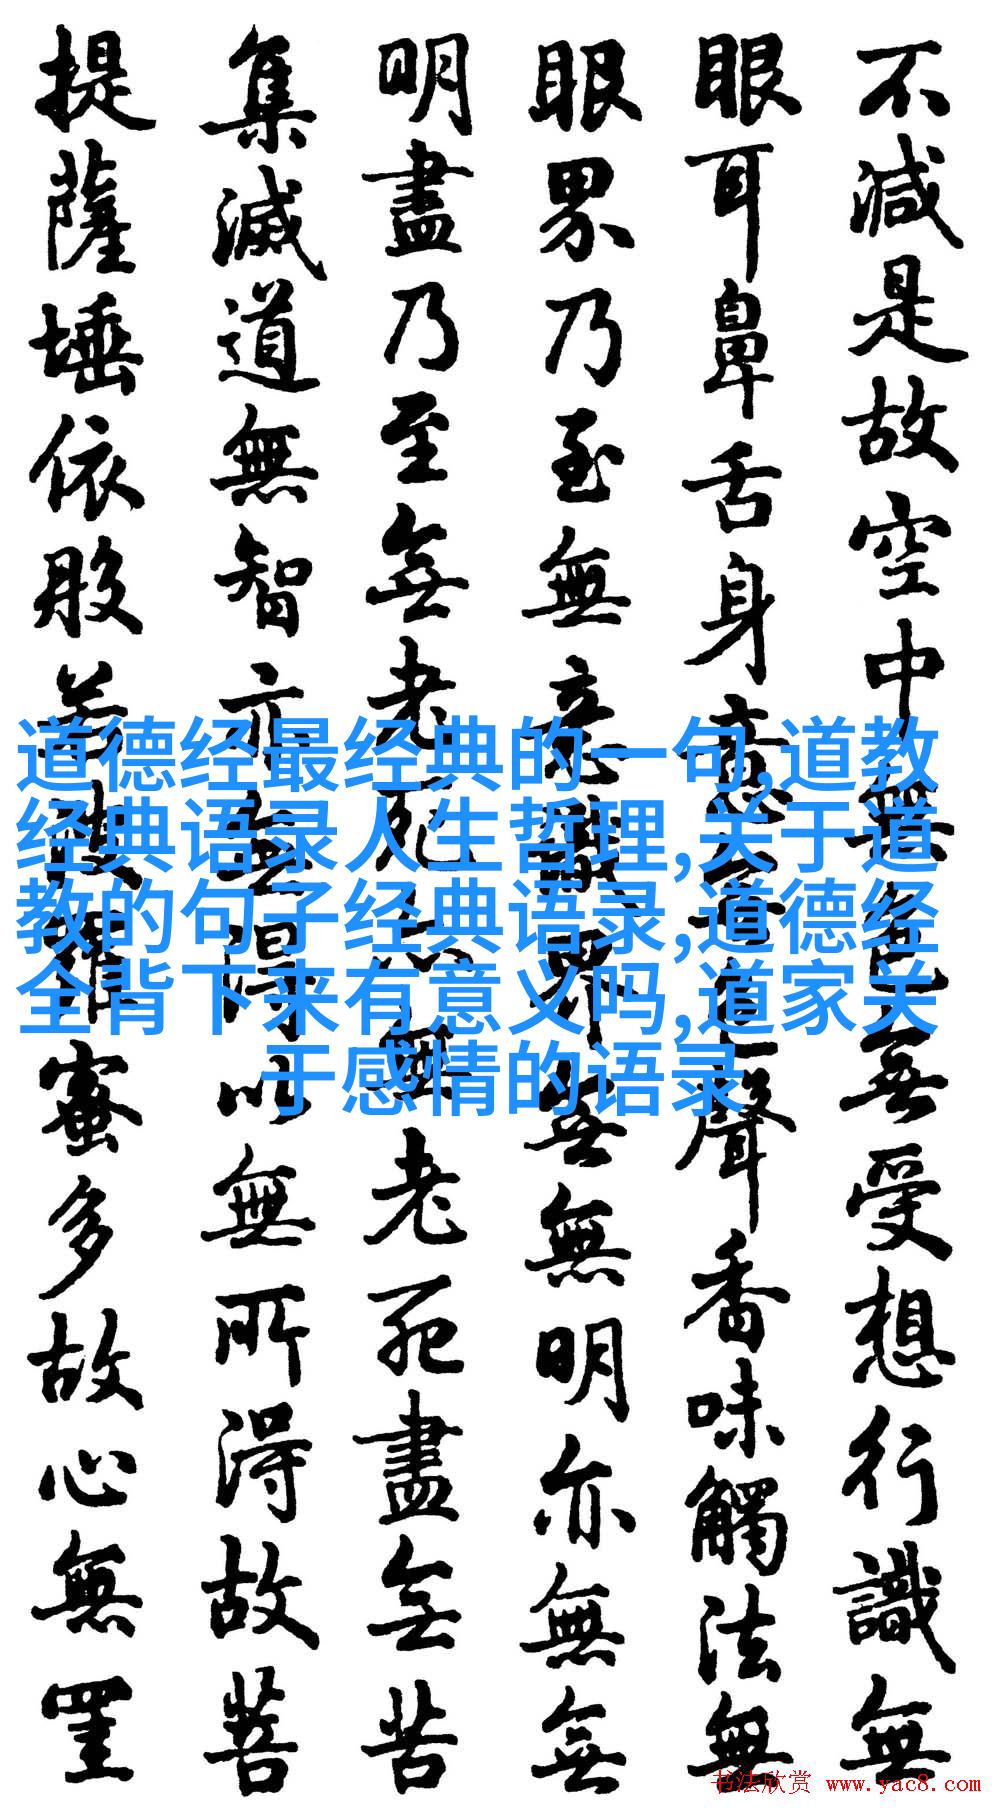 不減是故空中無色無受想行識無
眼耳鼻舌身意無色聲香味觸法無
眼界乃至無意識界無無明亦無無
明盡乃至無老死亦無老死盡無苦
集滅道無智亦無得以無所得故菩
提薩埵依般若波羅蜜多故心無罣
道德经最经典的一句,道教
经典语录人生哲理,关于道
教的句子经典语录,道德经
全背下来有意义吗,道家关
于感情的语录
书法欣赏 www.yac8.com